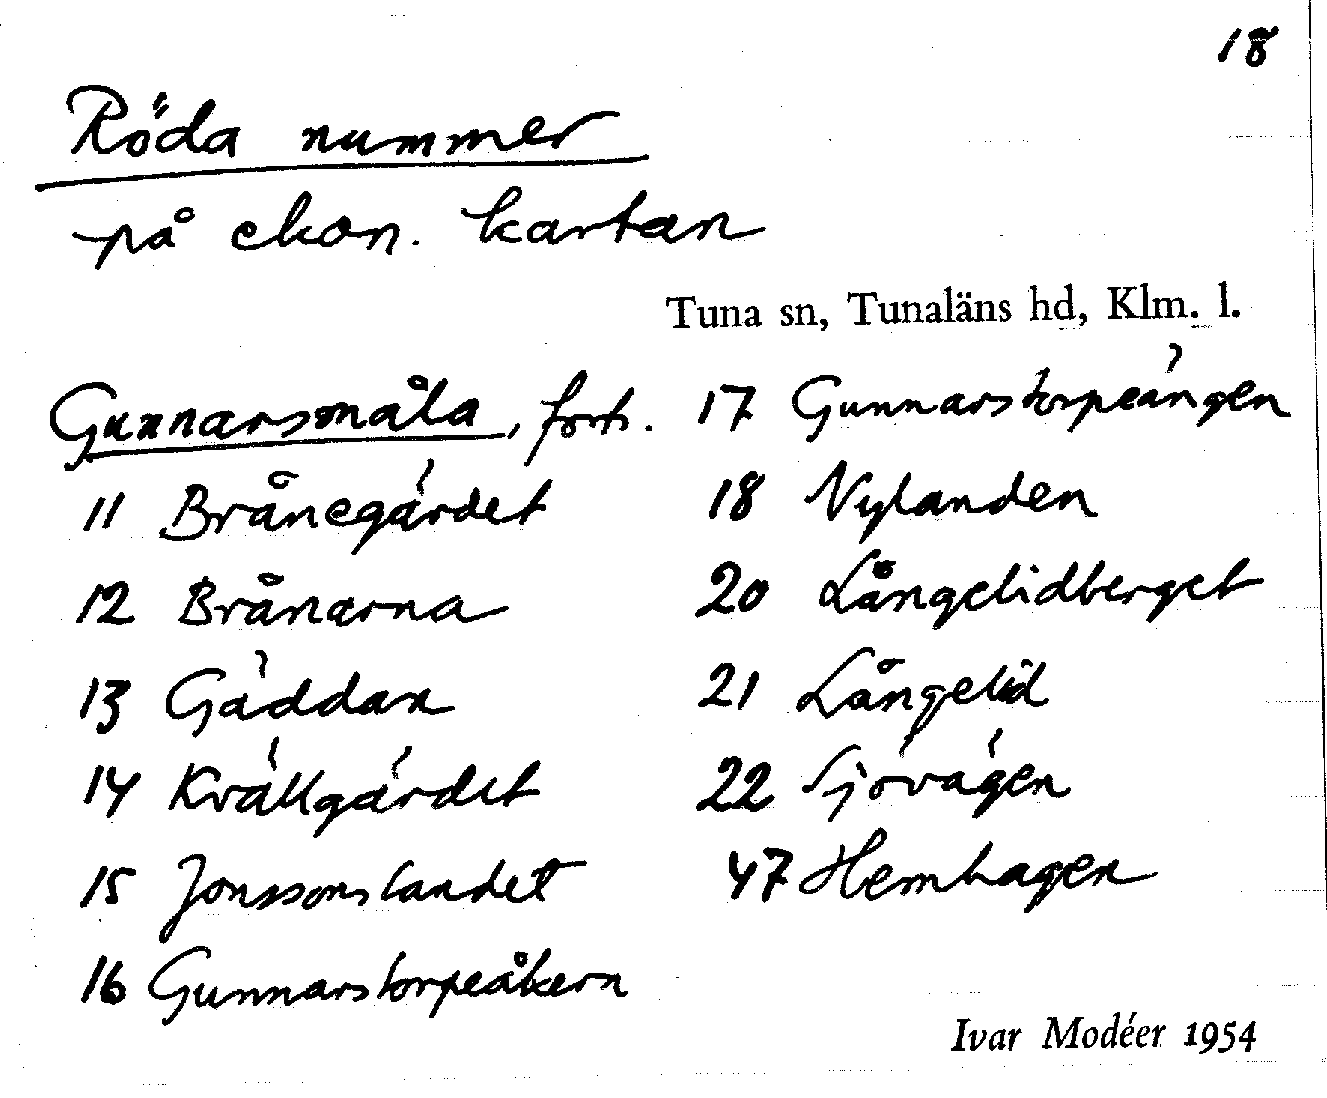 18
Röda nummer
på ekon. kartan
Tuna sn, Tunaläns hd, Klm. l.
Gunnarsmåla, forts.
11 Brånegärdet
12 Brånarna
13 Gäddan
14 Kvällgärdet
15 Jonssonslandet
16 Gunnarstorpeåkern
17 Gunnarstorpeängen
18 Nylanden
20 Långelidberget
21 Långelid
22 Sjövägen
47 Hemhagen
Ivar Modéer 1954